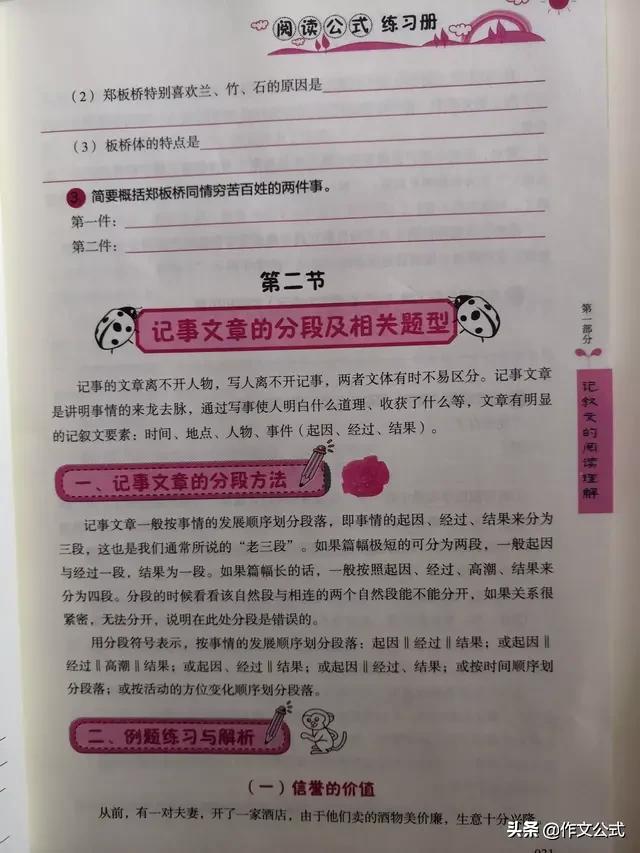 阅读公式 练习册
（2）郑板桥特别喜欢兰、竹、石的原因是
（3）板桥体的特点是
3 简要概括郑板桥同情穷苦百姓的两件事。
第一件：
第二件：
第二节
记事文章的分段及相关题型
记事的文章离不开人物，写人离不开记事，两者文体有时不易区分。记事文章
是讲明事情的来龙去脉，通过写事使人明白什么道理、收获了什么等，文章有明显
的记叙文要素：时间、地点、人物、事件（起因、经过、结果）。
一、记事文章的分段方法
记事文章一般按事情的发展顺序划分段落，即事情的起因、经过、结果来分为
三段，这也是我们通常所说的“老三段”。如果篇幅极短的可分为两段，一般起因
与经过一段，结果为一段。如果篇幅长的话，一般按照起因、经过、高潮、结果来
分为四段。分段的时候看看该自然段与相连的两个自然段能不能分开，如果关系很
紧密，无法分开，说明在此处分段是错误的。
用分段符号表示，按事情的发展顺序划分段落：起因‖经过‖结果；或起因‖
经过‖高潮‖结果；或起因、经过‖结果；或起因‖经过、结果；或按时间顺序划
分段落；或按活动的方位变化顺序划分段落。
二、例题练习与解析
（一）信誉的价值
从前，有一对夫妻，开了一家酒店，由于他们卖的酒物美价廉，生意十分兴隆
第一部分
记叙文的阅读理解
头条 @作文公式